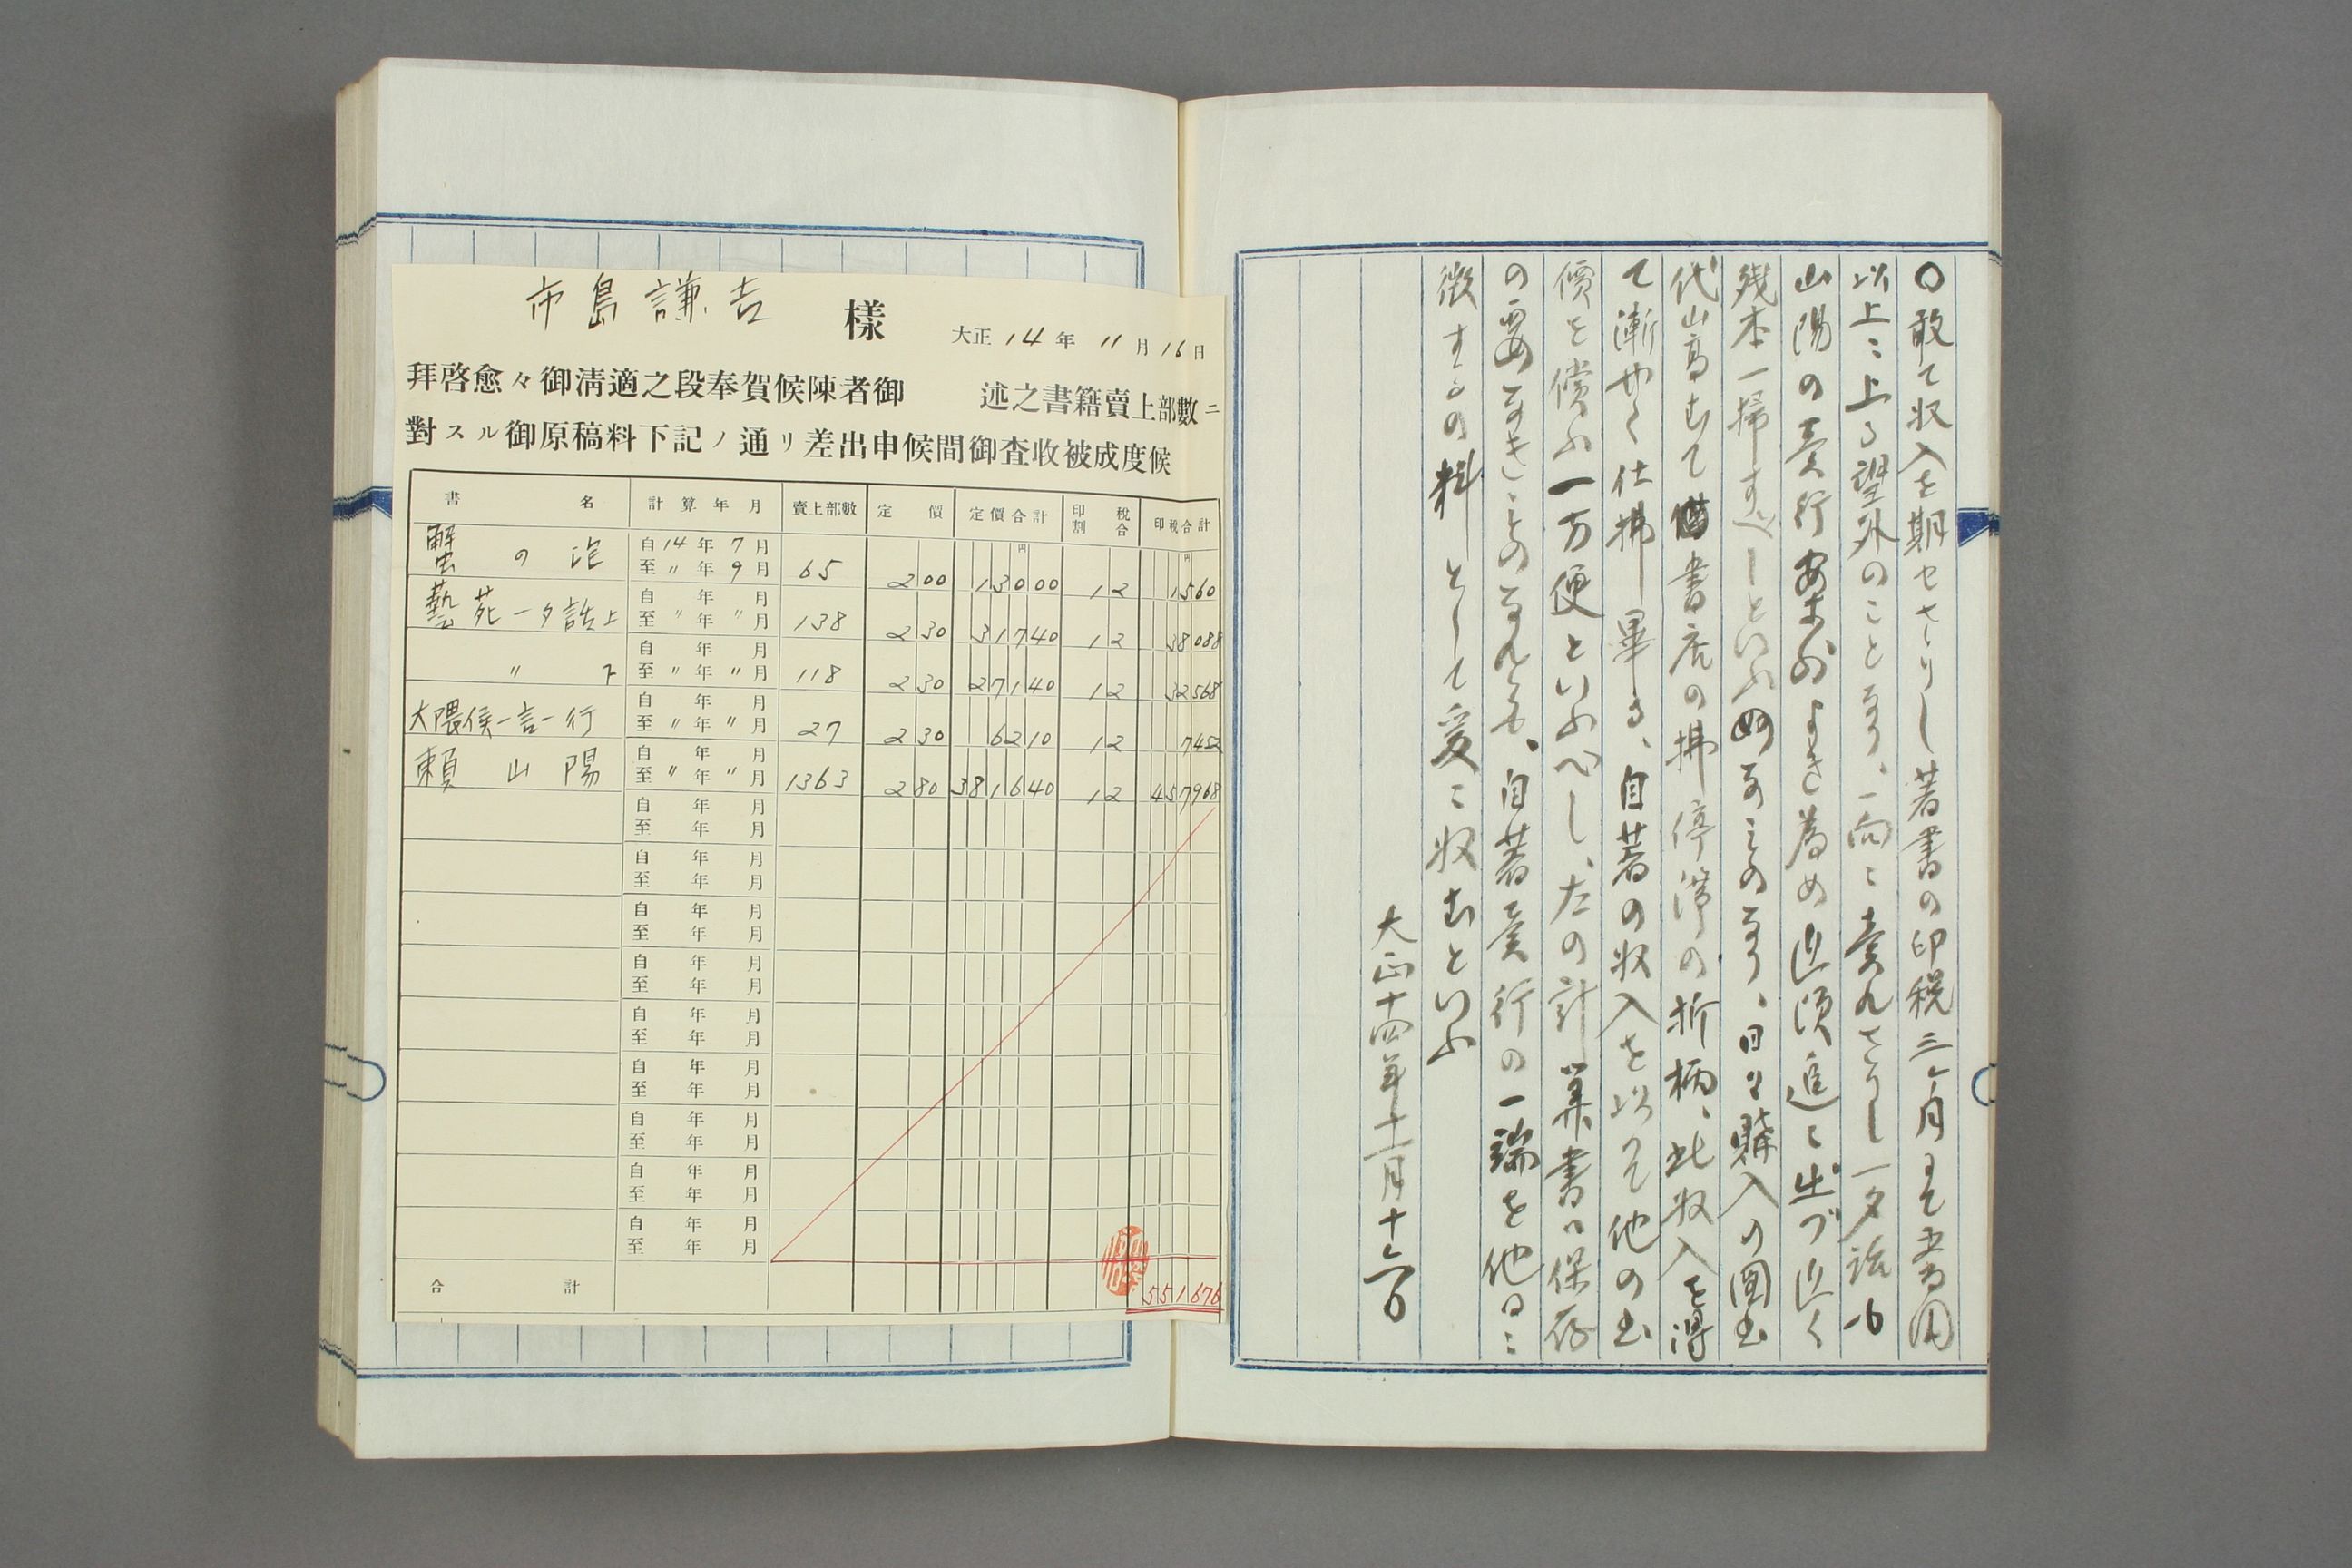 〇敢て収入を期せさりし著書の印税三ヶ月まで五百円
以上ニ上る望外のことなり、一向ニ売れさりし一夕話も
山陽の売行あまりよき為め近頃追々出づ近く
残本一掃すべしといふ
代山高むて書店の拂停滞の折柄、此収入を得
て漸やく仕拂し畢る、自著の収入を以て他の書
價を償ふ一方便といふべし、左の計算書は保存
の要なきものなれども、自著売行の一端を他日ニ
徴するの料として爰ニ収むといふ
大正十四年十一月十六日
市島謙吉 樣
大正14年11月16日
拜啓愈々御淸適之段奉賀候陳者御 述之書籍賣上部數ニ
對スル御原稿料下記ノ通リ差出申候間御査收被成度候
書名 計算年月 賣上部數 定價 定價合計 印稅割合 印稅合計
蟹の泡 自14年7月 至〃年9月 65 200 13000 12 1560
藝苑一夕話上 自年月 至〃年〃月 138 230 31740 12 38088
〃 下 自年月 至〃年〃月 118 230 27140 12 32568
大隈侯一言一行 自年月 至〃年〃月 27 230 6210 12 7452
頼山陽 自年月 至〃年〃月 1363 280 381640 12 457968
自年月 至年月
自年月 至年月
自年月 至年月
自年月 至年月
自年月 至年月
自年月 至年月
自年月 至年月
自年月 至年月
自年月 至年月
合計 551676